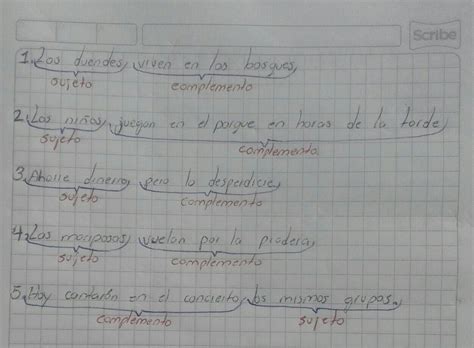 Scribe
1. Los duendes, viven en los bosques,
sujeto complemento
2. Los niños, juegan en el parque en horas de la tarde,
sujeto complemento
3. Ahorre dinero, pero lo desperdicie,
sujeto complemento
4. Las mariposas, vuelan por la pradera,
sujeto complemento
5. Hoy cantarón en el concierto, los mismos grupos.
complemento sujeto